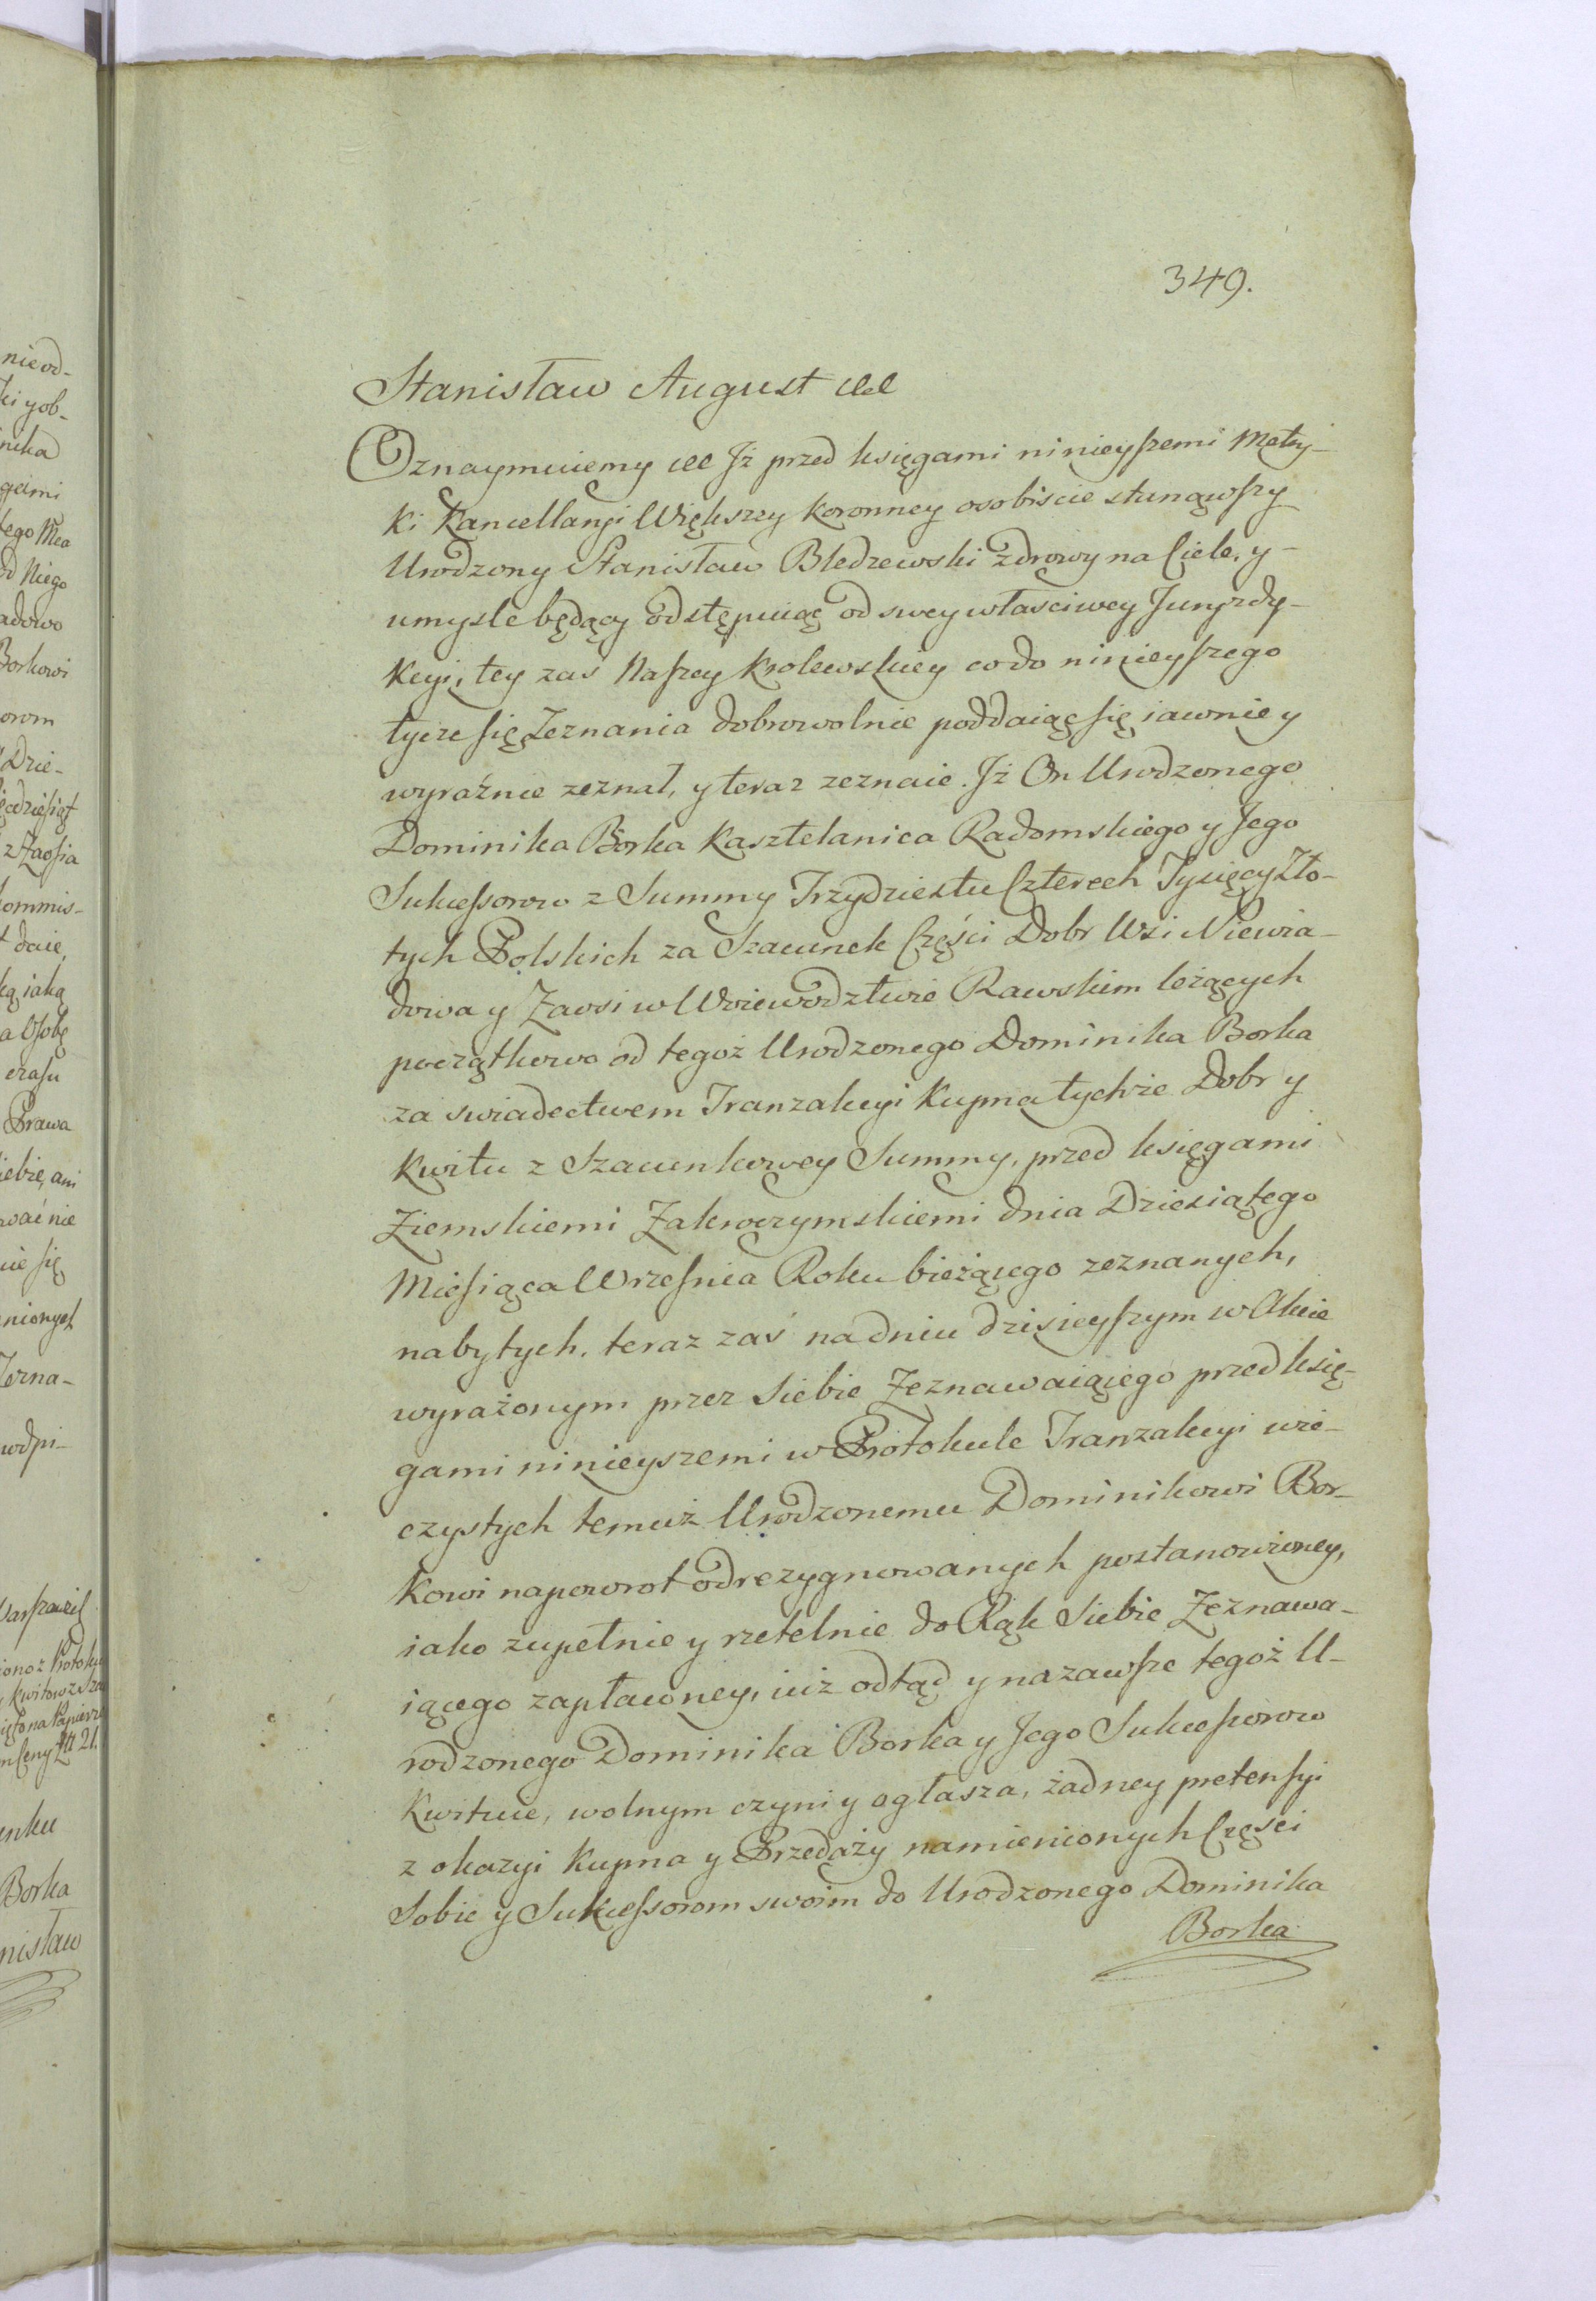 349.
Stanisław August &c
Oznaymuiemy &c Jż przed księgami ninieyszemi Metry-
ki Kancellaryi Większey Koronney osobiscie stanąwszy
Urodzony Stanisław Bledzewski zdrowy na Ciele, y-
umysle będący odstępuiąc od swey własciwey Juryzdy-
kcyi, tey zaś Naszey Krolewskiey co do ninieyszego
tycze się Zeznania dobrowolnie poddaiąc się iawnie y
wyraźnie zeznał, y teraz zeznaie. Jż On Urodzonego
Dominika Borka Kasztelanica Radomskiego y Jego
Sukcessorow z Summy Trzydziestu Czterech Tysięcy Zło-
tych Polskich za Szacunek Części Dobr Wsi Niewia-
dowa y Zaosi w Woiewodztwie Rawskim leżących
początkowo od tegoż Urodzonego Dominika Borka
za swiadectwem Tranzakcyi Kupna tychże Dobr y
Kwitu z Szacunkowey Summy, przed księgami
Ziemskiemi Zakroczymskiemi dnia Dziesiątego
Miesiąca Wrzesnia Roku bieżącego zeznanych,
nabytych, teraz zaś na dniu dzisieyszym w Akcie
wyrażonym przez Siebie Zeznawaiącego przed księ-
gami ninieyszemi w Protokule Tranzakcyi wie-
czystych temuż Urodzonemu Dominikowi Bor-
kowi napowrot odrezygnowanych postanowioney,
iako zupełnie y rzetelnie do Rąk Siebie Zeznawa-
iącego zapłaconey, iuż odtąd y nazawsze tegoż U-
rodzonego Dominika Borka y Jego Sukcessorow
Kwituie, wolnym czyni y ogłasza, żadney pretensyi
z okazyi Kupna y Przedaży namienionych Części
Sobie y Sukcessorom swoim do Urodzonego Dominika
Borka